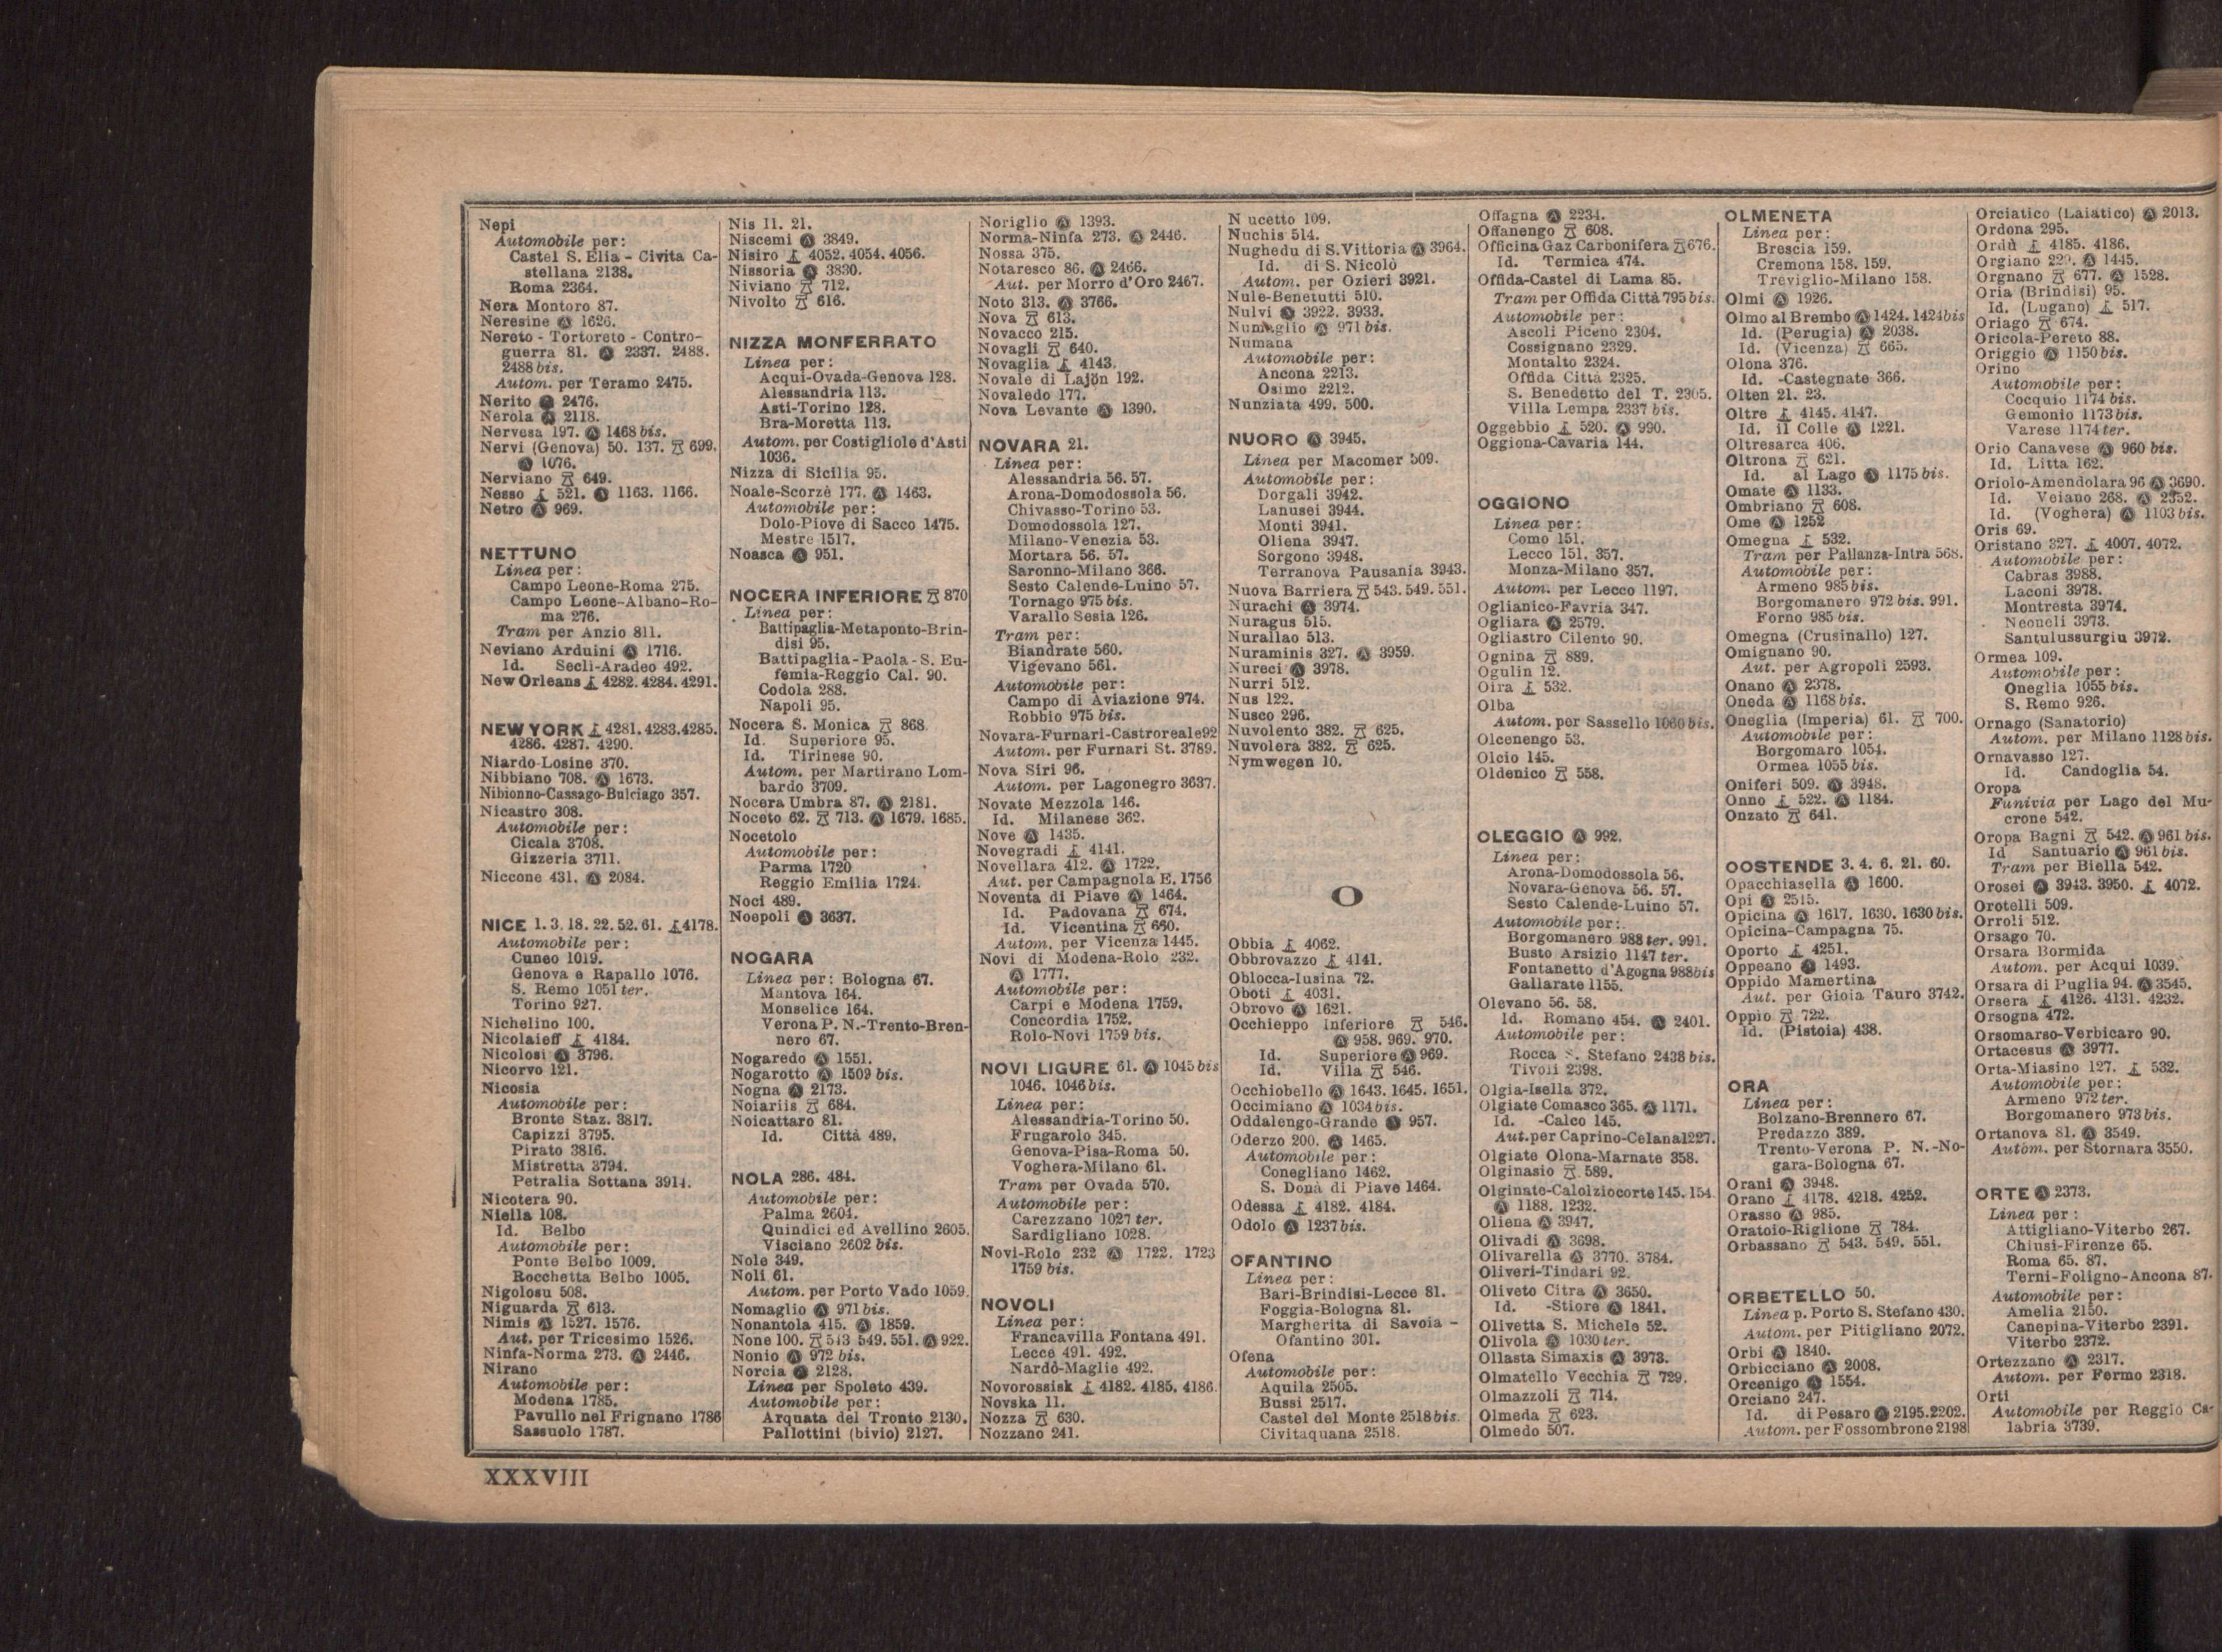 Nepi
Automobile per:
Castel S. Elia - Civita Ca-
stellana 2138.
Roma 2364.
Nera Montoro 87.
Neresine Ⓐ 1626.
Nereto - Tortoreto - Contro-
guerra 81. Ⓐ 2337. 2488.
2488 bis.
Autom. per Teramo 2475.
Nerito Ⓐ 2476.
Nerola Ⓐ 2118.
Nervesa 197. Ⓐ 1468 bis.
Nervi (Genova) 50. 137. 699.
Ⓐ 1076.
Nerviano 649.
Nesso 521. Ⓐ 1163. 1166.
Netro Ⓐ 969.
NETTUNO
Linea per:
Campo Leone-Roma 275.
Campo Leone-Albano-Ro-
ma 276.
Tram per Anzio 811.
Neviano Arduini Ⓐ 1716.
Id. Secli-Aradeo 492.
New Orleans 4282. 4284. 4291.
NEW YORK 4281. 4283. 4285.
4286. 4287. 4290.
Niardo-Losine 370.
Nibbiano 708. Ⓐ 1673.
Nibionno-Cassago-Bulciago 357.
Nicastro 308.
Automobile per:
Cicala 3708.
Gizzeria 3711.
Niccone 431. Ⓐ 2084.
NICE 1. 3. 18. 22. 52. 61. 4178.
Automobile per:
Cuneo 1019.
Genova e Rapallo 1076.
S. Remo 1051 ter.
Torino 927.
Nichelino 100.
Nicolaieff 4184.
Nicolosi Ⓐ 3796.
Nicorvo 121.
Nicosia
Automobile per:
Bronte Staz. 3817.
Capizzi 3795.
Pirato 3816.
Mistretta 3794.
Petralia Sottana 3914.
Nicotera 90.
Niella 108.
Id. Belbo
Automobile per:
Ponte Belbo 1009.
Rocchetta Belbo 1005.
Nigolosu 508.
Niguarda 613.
Nimis Ⓐ 1527. 1576.
Aut. per Tricesimo 1526.
Ninfa-Norma 273. Ⓐ 2446.
Nirano
Automobile per:
Modena 1785.
Pavullo nel Frignano 1786
Sassuolo 1787.
Nis 11. 21.
Niscemi Ⓐ 3849.
Nisiro 4052. 4054. 4056.
Nissoria Ⓐ 3830.
Niviano 712.
Nivolto 616.
NIZZA MONFERRATO
Linea per:
Acqui-Ovada-Genova 128.
Alessandria 113.
Asti-Torino 128.
Bra-Moretta 113.
Autom. per Costigliole d'Asti
1036.
Nizza di Sicilia 95.
Noale-Scorzè 177. Ⓐ 1463.
Automobile per:
Dolo-Piove di Sacco 1475.
Mestre 1517.
Noasca Ⓐ 951.
NOCERA INFERIORE 870
Linea per:
Battipaglia-Metaponto-Brin-
disi 95.
Battipaglia - Paola - S. Eu-
femia-Reggio Cal. 90.
Codola 288.
Napoli 95.
Nocera S. Monica 868
Id. Superiore 95.
Id. Tirinese 90.
Autom. per Martirano Lom-
bardo 3709.
Nocera Umbra 87. Ⓐ 2181.
Noceto 62. 713. Ⓐ 1679. 1685.
Nocetolo
Automobile per:
Parma 1720
Reggio Emilia 1724.
Noci 489.
Noepoli Ⓐ 3637.
NOGARA
Linea per: Bologna 67.
Mantova 164.
Monselice 164.
Verona P. N.-Trento-Bren-
nero 67.
Nogaredo Ⓐ 1551.
Nogarotto Ⓐ 1509 bis.
Nogna Ⓐ 2173.
Noiariis 684.
Noicattaro 81.
Id. Città 489.
NOLA 286. 484.
Automobile per:
Palma 2604.
Quindici ed Avellino 2605.
Visciano 2602 bis.
Nole 349.
Noli 61.
Autom. per Porto Vado 1059.
Nomaglio Ⓐ 971 bis.
Nonantola 415. Ⓐ 1859.
None 100. 543 549. 551. Ⓐ 922.
Nonio Ⓐ 972 bis.
Norcia Ⓐ 2128.
Linea per Spoleto 439.
Automobile per:
Arquata del Tronto 2130.
Pallottini (bivio) 2127.
Noriglio Ⓐ 1393.
Norma-Ninfa 273. Ⓐ 2446.
Nossa 375.
Notaresco 86. Ⓐ 2466.
Aut. per Morro d'Oro 2467.
Noto 313. Ⓐ 3766.
Nova 613.
Novacco 215.
Novagli 640.
Novaglia 4143.
Novale di Lajön 192.
Novaledo 177.
Nova Levante Ⓐ 1390.
NOVARA 21.
Linea per:
Alessandria 56. 57.
Arona-Domodossola 56.
Chivasso-Torino 53.
Domodossola 127.
Milano-Venezia 53.
Mortara 56. 57.
Saronno-Milano 366.
Sesto Calende-Luino 57.
Tornago 975 bis.
Varallo Sesia 126.
Tram per:
Biandrate 560.
Vigevano 561.
Automobile per:
Campo di Aviazione 974.
Robbio 975 bis.
Novara-Furnari-Castroreale 92
Autom. per Furnari St. 3789.
Nova Siri 96.
Autom. per Lagonegro 3637.
Novate Mezzola 146.
Id. Milanese 362.
Nove Ⓐ 1435.
Novegradi 4141.
Novellara 412. Ⓐ 1722.
Aut. per Campagnola E. 1756
Noventa di Piave Ⓐ 1464.
Id. Padovana 674.
Id. Vicentina 660.
Autom. per Vicenza 1445.
Novi di Modena-Rolo 232.
Ⓐ 1777.
Automobile per:
Carpi e Modena 1759.
Concordia 1752.
Rolo-Novi 1759 bis.
NOVI LIGURE 61. Ⓐ 1045 bis
1046. 1046 bis.
Linea per:
Alessandria-Torino 50.
Frugarolo 345.
Genova-Pisa-Roma 50.
Voghera-Milano 61.
Tram per Ovada 570.
Automobile per:
Carezzano 1027 ter.
Sardigliano 1028.
Novi-Rolo 232 Ⓐ 1722. 1723
1759 bis.
NOVOLI
Linea per:
Francavilla Fontana 491.
Lecce 491. 492.
Nardò-Maglie 492.
Novorossisk 4182. 4185. 4186.
Novska 11.
Nozza 630.
Nozzano 241.
N ucetto 109.
Nuchis 514.
Nughedu di S. Vittoria Ⓐ 3964.
Id. di S. Nicolò
Autom. per Ozieri 3921.
Nule-Benetutti 510.
Nulvi Ⓐ 3922. 3933.
Numaglio Ⓐ 971 bis.
Numana
Automobile per:
Ancona 2213.
Osimo 2212.
Nunziata 499. 500.
NUORO Ⓐ 3945.
Linea per Macomer 509.
Automobile per:
Dorgali 3942.
Lanusei 3944.
Monti 3941.
Oliena 3947.
Sorgono 3948.
Terranova Pausania 3943.
Nuova Barriera 543. 549. 551.
Nurachi Ⓐ 3974.
Nuragus 515.
Nurallao 513.
Nuraminis 327. Ⓐ 3959.
Nureci Ⓐ 3978.
Nurri 512.
Nus 122.
Nusco 296.
Nuvolento 382. 625.
Nuvolera 382. 625.
Nymwegen 10.
O
Obbia 4062.
Obbrovazzo 4141.
Oblocca-Iusina 72.
Oboti 4031.
Obrovo Ⓐ 1621.
Occhieppo Inferiore 546.
Ⓐ 958. 969. 970.
Id. Superiore Ⓐ 969.
Id. Villa 546.
Occhiobello Ⓐ 1643. 1645. 1651.
Occimiano Ⓐ 1034 bis.
Oddalengo-Grande Ⓐ 957.
Oderzo 200. Ⓐ 1465.
Automobile per:
Conegliano 1462.
S. Donà di Piave 1464.
Odessa 4182. 4184.
Odolo Ⓐ 1237 bis.
OFANTINO
Linea per:
Bari-Brindisi-Lecce 81.
Foggia-Bologna 81.
Margherita di Savoia -
Ofantino 301.
Ofena
Automobile per:
Aquila 2505.
Bussi 2517.
Castel del Monte 2518 bis.
Civitaquana 2518.
Offagna Ⓐ 2234.
Offanengo 608.
Officina Gaz Carbonifera 676.
Id. Termica 474.
Offida-Castel di Lama 85.
Tram per Offida Città 795 bis.
Automobile per:
Ascoli Piceno 2304.
Cossignano 2329.
Montalto 2324.
Offida Città 2325.
S. Benedetto del T. 2305.
Villa Lempa 2337 bis.
Oggebbio 520. Ⓐ 990.
Oggiona-Cavaria 144.
OGGIONO
Linea per:
Como 151.
Lecco 151. 357.
Monza-Milano 357.
Autom. per Lecco 1197.
Oglianico-Favria 347.
Ogliara Ⓐ 2579.
Ogliastro Cilento 90.
Ognina 889.
Ogulin 12.
Oira 532.
Olba
Autom. per Sassello 1060 bis.
Olcenengo 53.
Olcio 145.
Oldenico 558.
OLEGGIO Ⓐ 992.
Linea per:
Arona-Domodossola 56.
Novara-Genova 56. 57.
Sesto Calende-Luino 57.
Automobile per:
Borgomanero 988 ter. 991.
Busto Arsizio 1147 ter.
Fontanetto d'Agogna 988 bis
Gallarate 1155.
Olevano 56. 58.
Id. Romano 454. Ⓐ 2401.
Automobile per:
Rocca S. Stefano 2438 bis.
Tivoli 2398.
Olgia-Isella 372.
Olgiate Comasco 365. Ⓐ 1171.
Id. -Calco 145.
Aut. per Caprino-Celana 1227.
Olgiate Olona-Marnate 358.
Olginasio 589.
Olginate-Calolziocorte 145. 154.
Ⓐ 1188. 1232.
Oliena Ⓐ 3947.
Olivadi Ⓐ 3698.
Olivarella Ⓐ 3770. 3784.
Oliveri-Tindari 92.
Oliveto Citra Ⓐ 3650.
Id. -Stiore Ⓐ 1841.
Olivetta S. Michele 52.
Olivola Ⓐ 1030 ter.
Ollasta Simaxis Ⓐ 3973.
Olmatello Vecchia 729.
Olmazzoli 714.
Olmeda 623.
Olmedo 507.
OLMENETA
Linea per:
Brescia 159.
Cremona 158. 159.
Treviglio-Milano 158.
Olmi Ⓐ 1926.
Olmo al Brembo Ⓐ 1424. 1424 bis
Id. (Perugia) Ⓐ 2038.
Id. (Vicenza) 665.
Olona 376.
Id. -Castegnate 366.
Olten 21. 23.
Oltre 4145. 4147.
Id. il Colle Ⓐ 1221.
Oltresarca 406.
Oltrona 621.
Id. al Lago Ⓐ 1175 bis.
Omate Ⓐ 1133.
Ombriano 608.
Ome Ⓐ 1252
Omegna 532.
Tram per Pallanza-Intra 568.
Automobile per:
Armeno 985 bis.
Borgomanero 972 bis. 991.
Forno 985 bis.
Omegna (Crusinallo) 127.
Omignano 90.
Aut. per Agropoli 2593.
Onano Ⓐ 2378.
Oneda Ⓐ 1168 bis.
Oneglia (Imperia) 61. 700.
Automobile per:
Borgomaro 1054.
Ormea 1055 bis.
Oniferi 509. Ⓐ 3948.
Onno 522. Ⓐ 1184.
Onzato 641.
OOSTENDE 3. 4. 6. 21. 60.
Opacchiasella Ⓐ 1600.
Opi Ⓐ 2515.
Opicina Ⓐ 1617. 1630. 1630 bis.
Opicina-Campagna 75.
Oporto 4251.
Oppeano Ⓐ 1493.
Oppido Mamertina
Aut. per Gioia Tauro 3742.
Oppio 722.
Id. (Pistoia) 438.
ORA
Linea per:
Bolzano-Brennero 67.
Predazzo 389.
Trento-Verona P. N.-No-
gara-Bologna 67.
Orani Ⓐ 3948.
Orano 4178. 4218. 4252.
Orasso Ⓐ 985.
Oratoio-Riglione 784.
Orbassano 543. 549. 551.
ORBETELLO 50.
Linea p. Porto S. Stefano 430.
Autom. per Pitigliano 2072.
Orbi Ⓐ 1840.
Orbicciano Ⓐ 2008.
Orcenigo Ⓐ 1554.
Orciano 247.
Id. di Pesaro Ⓐ 2195. 2202.
Autom. per Fossombrone 2198
Orciatico (Laiatico) Ⓐ 2013.
Ordona 295.
Ordù 4185. 4186.
Orgiano Ⓐ 1445.
Orgnano 677. Ⓐ 1528.
Oria (Brindisi) 95.
Id. (Lugano) 517.
Oriago 674.
Oricola-Pereto 88.
Origgio Ⓐ 1150 bis.
Orino
Automobile per:
Cocquio 1174 bis.
Gemonio 1173 bis.
Varese 1174 ter.
Orio Canavese Ⓐ 960 bis.
Id. Litta 162.
Oriolo-Amendolara 96 Ⓐ 3690.
Id. Veiano 268. Ⓐ 2352.
Id. (Voghera) Ⓐ 1103 bis.
Oris 69.
Oristano 327. 4007. 4072.
Automobile per:
Cabras 3988.
Laconi 3978.
Montresta 3974.
Neoneli 3973.
Santulussurgiu 3972.
Ormea 109.
Automobile per:
Oneglia 1055 bis.
S. Remo 926.
Ornago (Sanatorio)
Autom. per Milano 1128 bis.
Ornavasso 127.
Id. Candoglia 54.
Oropa
Funivia per Lago del Mu-
crone 542.
Oropa Bagni 542. Ⓐ 961 bis.
Id Santuario Ⓐ 961 bis.
Tram per Biella 542.
Orosei Ⓐ 3943. 3950. 4072.
Orotelli 509.
Orroli 512.
Orsago 70.
Orsara Bormida
Autom. per Acqui 1039.
Orsara di Puglia 94. Ⓐ 3545.
Orsera 4126. 4131. 4232.
Orsogna 472.
Orsomarso-Verbicaro 90.
Ortacesus Ⓐ 3977.
Orta-Miasino 127. 532.
Automobile per:
Armeno 972 ter.
Borgomanero 973 bis.
Ortanova 81. Ⓐ 3549.
Autom. per Stornara 3550.
ORTE Ⓐ 2373.
Linea per:
Attigliano-Viterbo 267.
Chiusi-Firenze 65.
Roma 65. 87.
Terni-Foligno-Ancona 87.
Automobile per:
Amelia 2150.
Canepina-Viterbo 2391.
Viterbo 2372.
Ortezzano Ⓐ 2317.
Autom. per Fermo 2318.
Orti
Automobile per Reggio Ca-
labria 3739.
XXXVIII